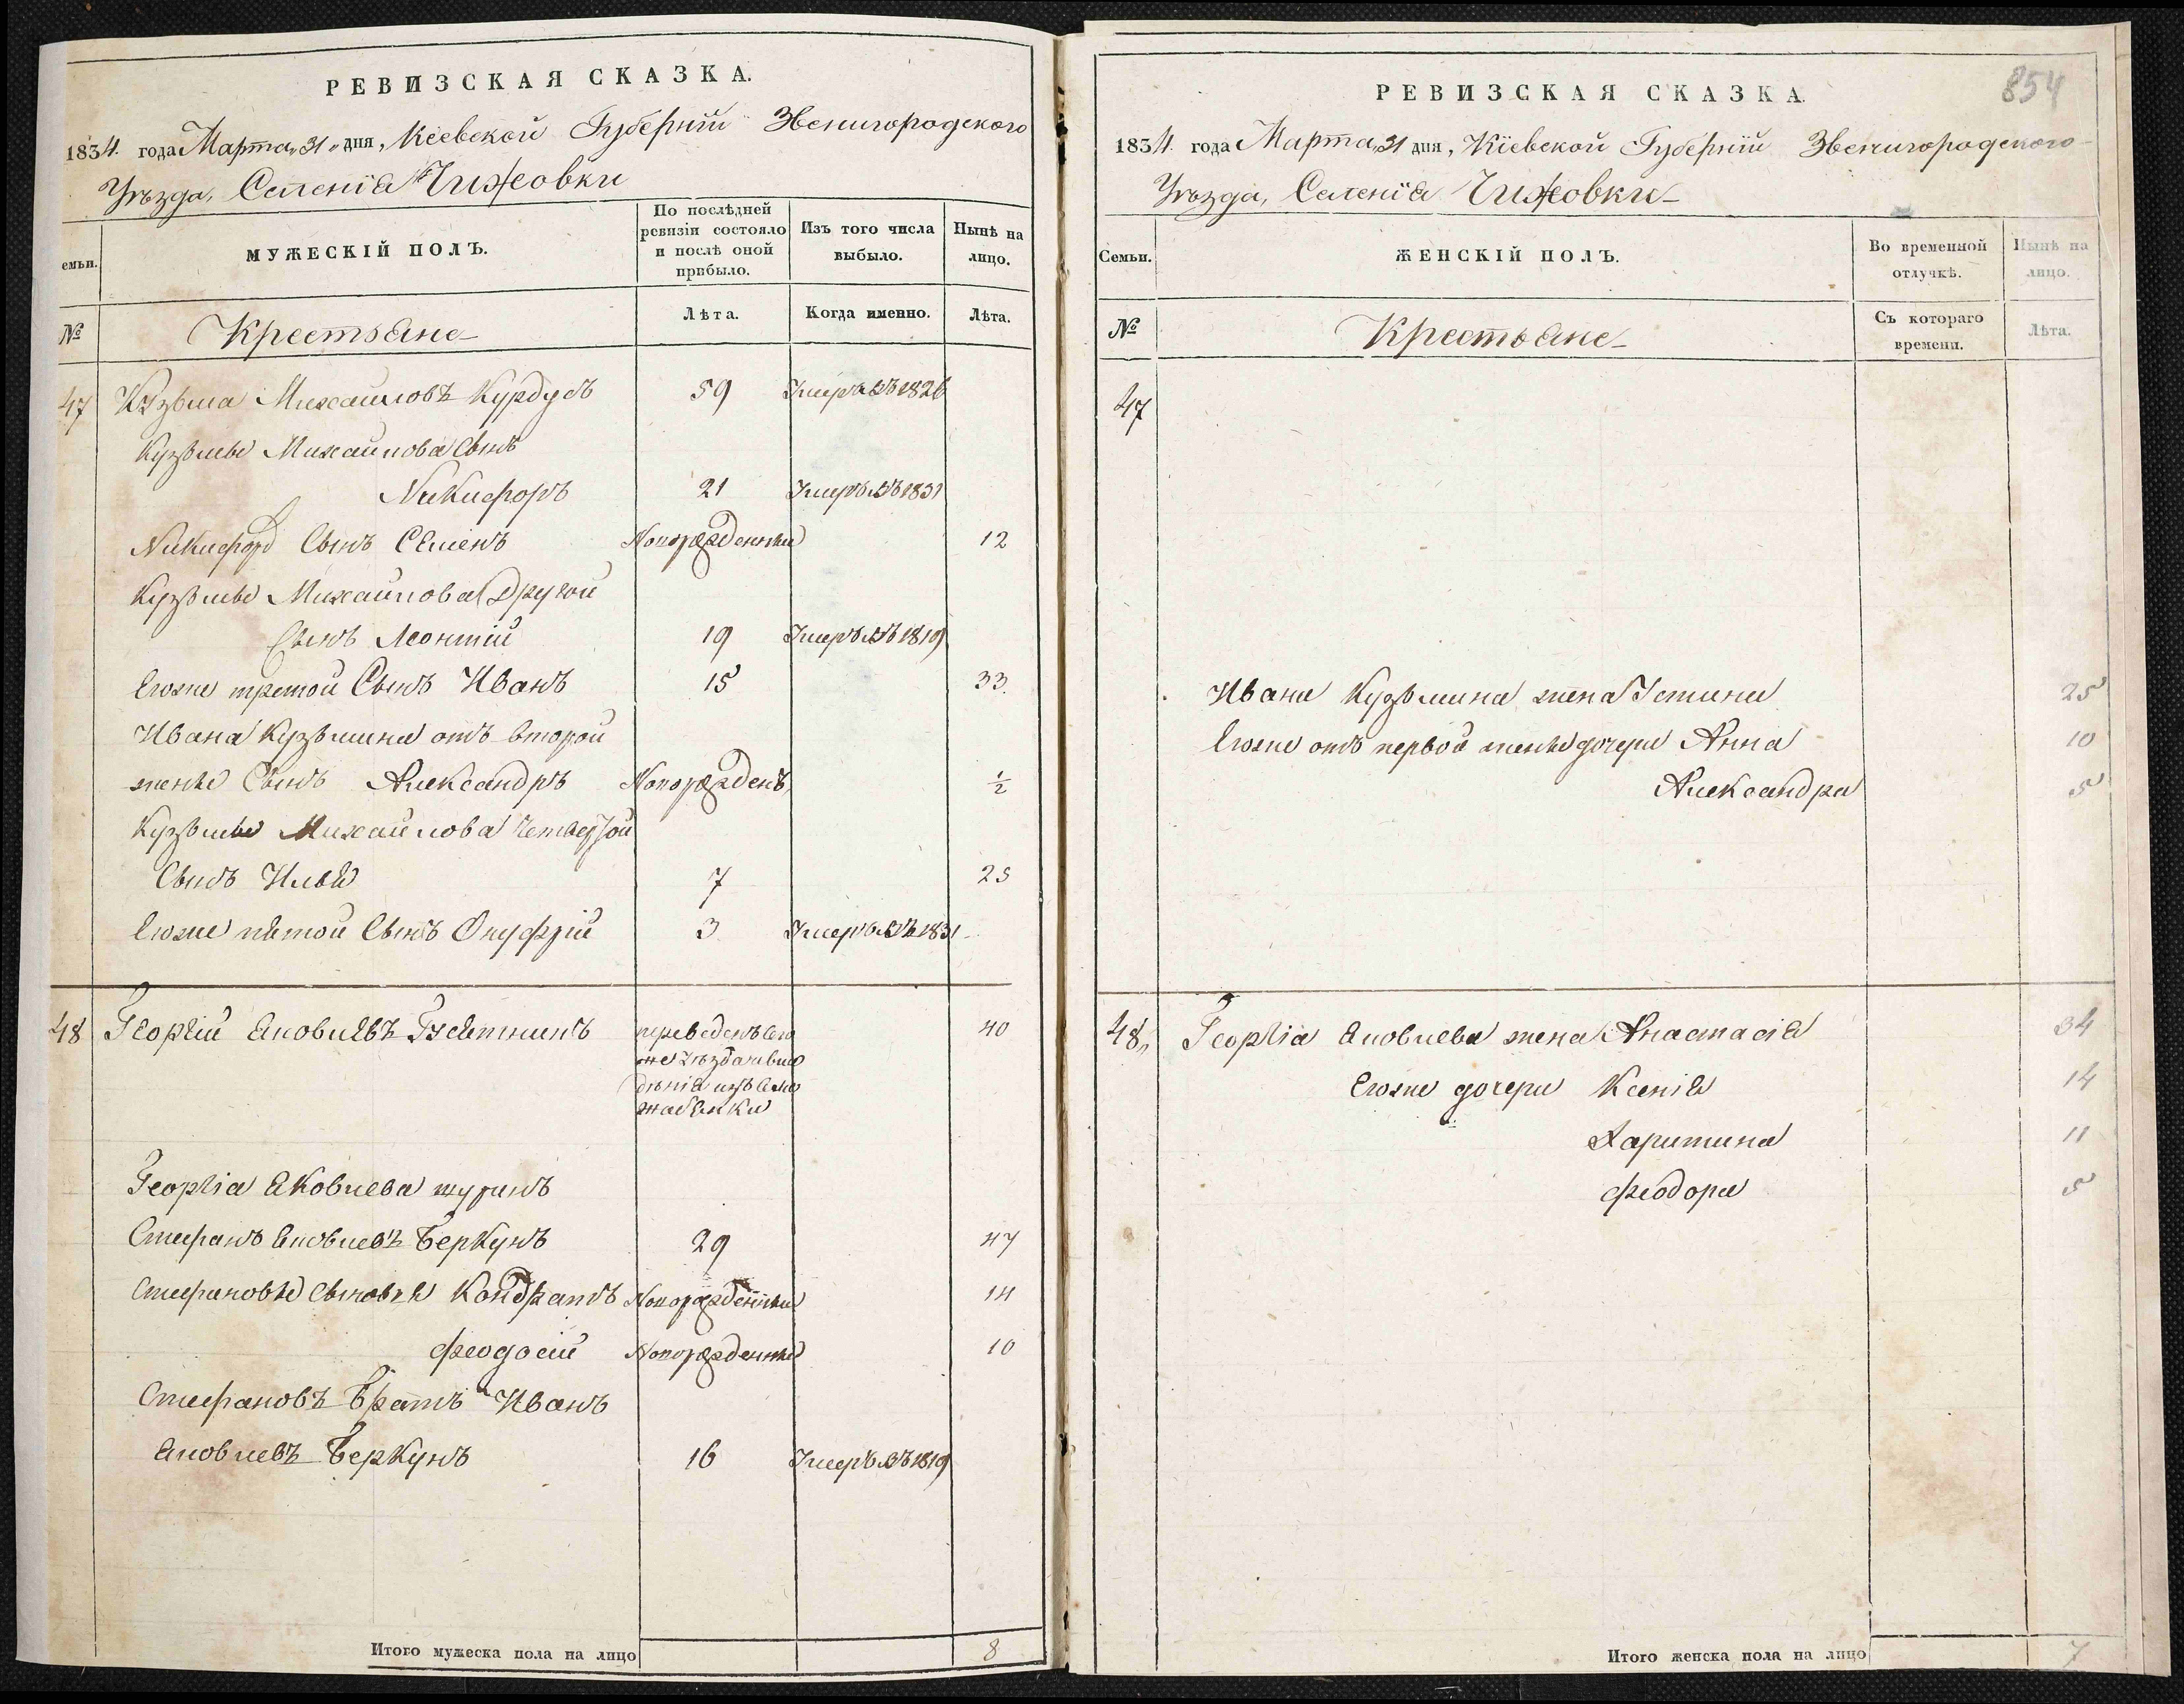 РЕВИЗСКАЯ СКАЗКА.
1834. года Марта „31„ дня, Кіевской Губерніи Звенигородского
Уѣзда, Селенія Чижовки
емьи.
МУЖЕСКІЙ ПОЛЪ.
По послѣдней ревизіи состояло и послѣ оной прибыло.
Изъ того числа выбыло.
Нынѣ на лицо.
№
Крестьяне
Лѣта.
Когда именно.
Лѣта.
47 Кузьма Михайловъ Курдубъ 59 Умеръ въ 1826
Кузьмы Михайлова Сынъ
Никифоръ 21 Умеръ въ 1831
Никифора Сынъ Семенъ Новорожденный 12
Кузьмы Михайлова Другой
Сынъ Леонтій 19 Умеръ въ 1819
Егоже третой Сынъ Иванъ 15 33.
Ивана Кузьмина отъ второй
жены Сынъ Александръ Новорожденъ ½
Кузьмы Михайлова Четвертой
Сынъ Илья 7 25
Егоже пятой Сынъ Онуфрій 3 Умеръ въ 1831
48 Георгій Яковлевъ 40
переведенъ сего
же Уѣзда
Георгія Яковлева шуринъ
Стефанъ Яковлевъ Беркунъ 29 47
Стефановы Сыновья Кондратъ Новорожденный 14
Феодосій Новорожденный 10
Стефановъ Братъ Иванъ
Яковлевъ Беркунъ 16 Умеръ въ 1819
Итого мужеска пола на лицо 8
854
РЕВИЗСКАЯ СКАЗКА.
1834. года Марта „31 дня, Кіевской Губерніи Звенигородского
Уѣзда, Селенія Чижовки
Семьи.
ЖЕНСКІЙ ПОЛЪ.
Во временной отлучкѣ.
Нынѣ на лицо.
№
Крестьяне
Съ котораго времени.
Лѣта.
47
Ивана Кузьмина жена Устина 25
Егоже отъ первой жены дочери Анна 10
Александра 5
48„ Георгія Яковлева жена Анастасія 34
Егоже дочери Ксенія 14
Харитина 11
Феодора 5
Итого женска пола на лицо 7